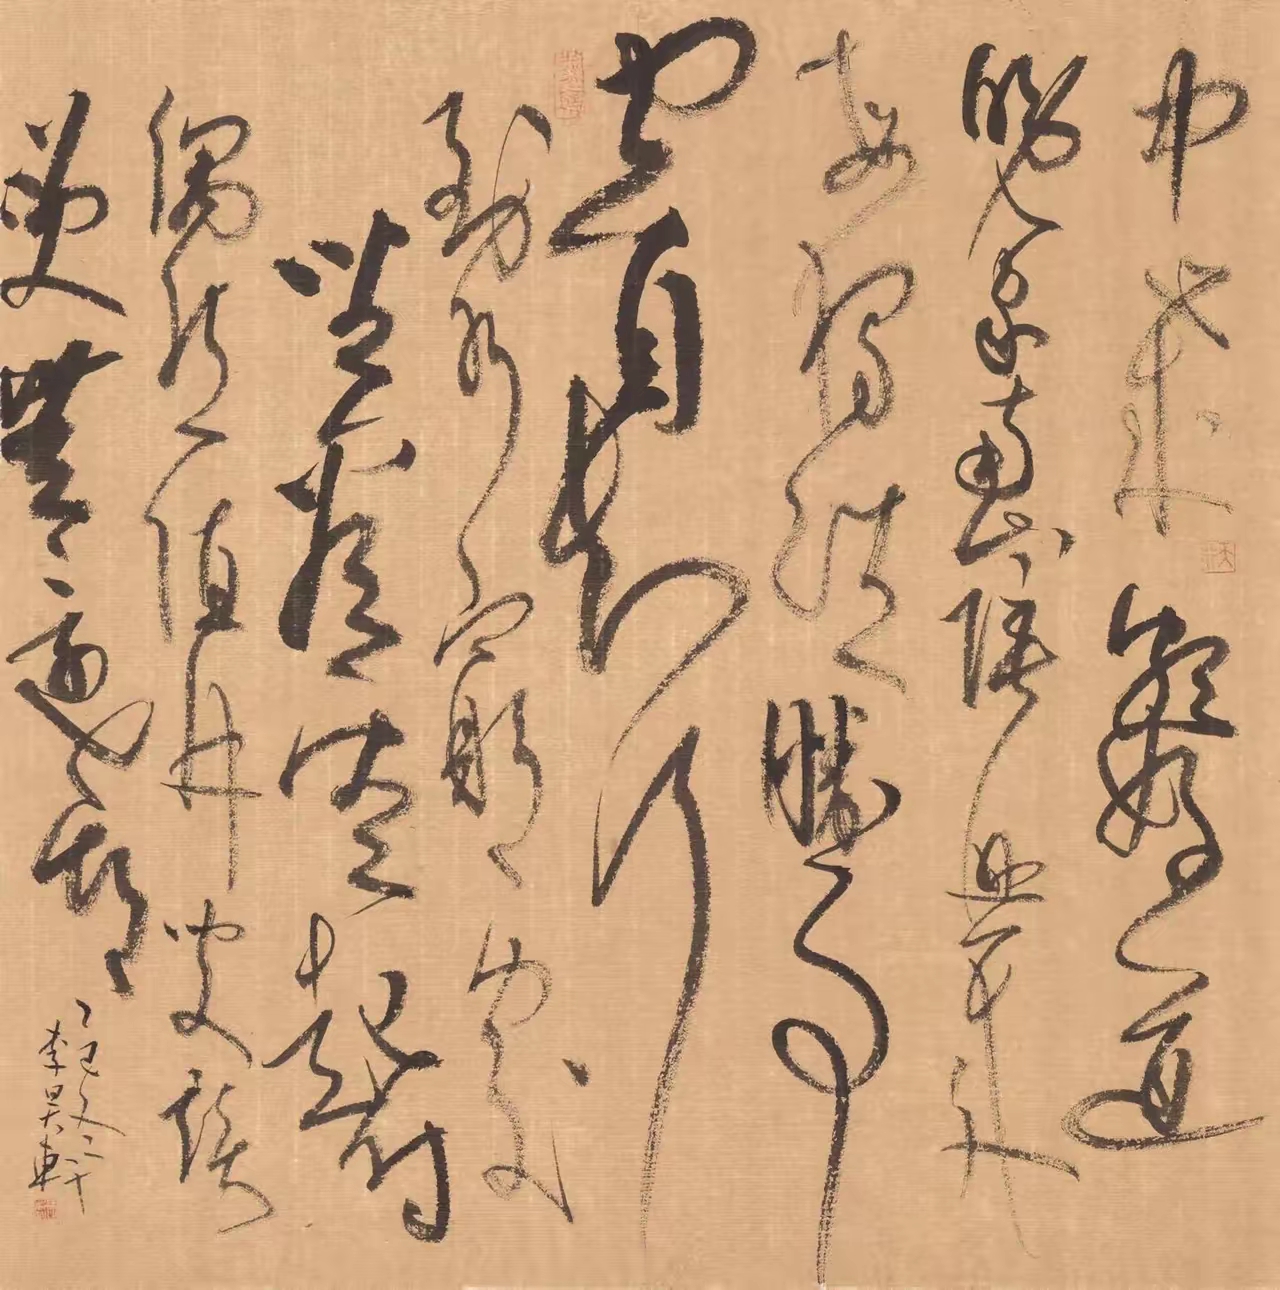 中歲頗好道
晚家南山陲興來
每獨往勝事
空自知行
到水窮處
坐看雲起時
偶然值林叟談
笑無還期
乙巳冬
李昊軒